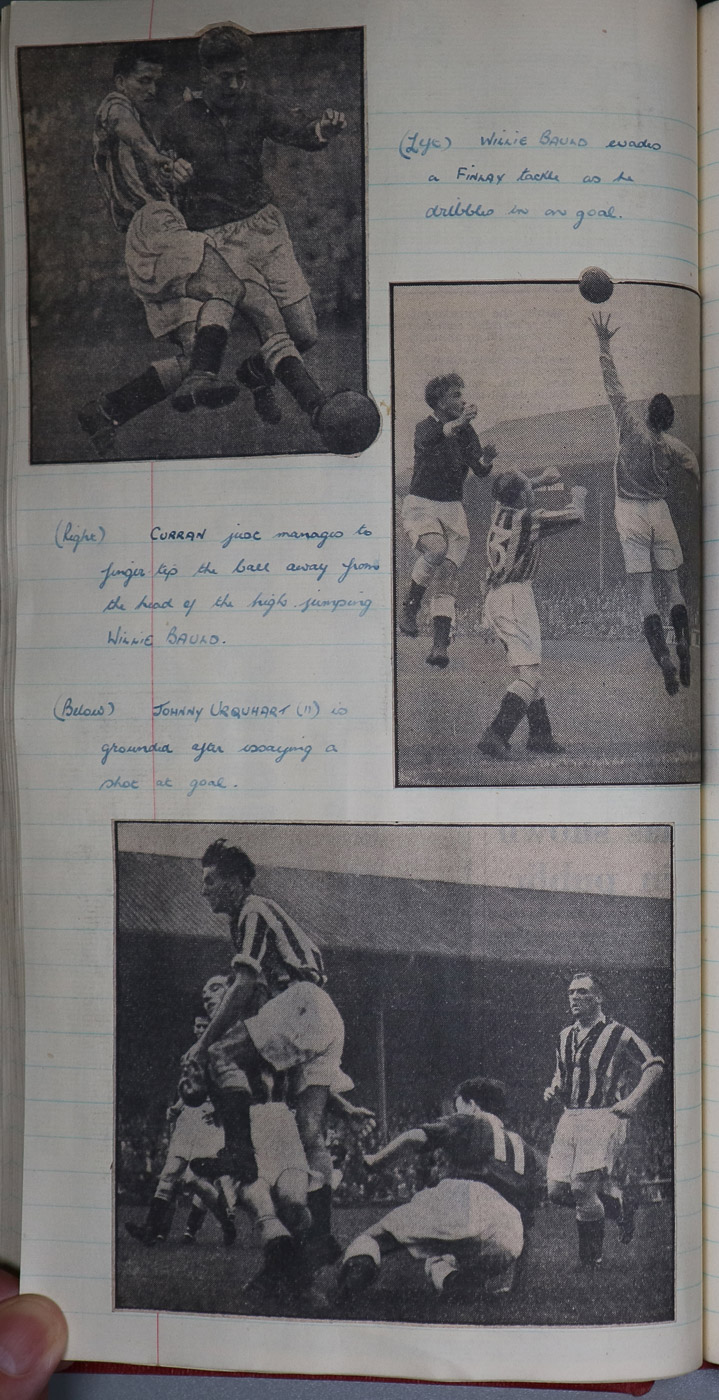 (Left) WILLIE BAULD evades
a FINLAY tackle as he
dribbles in on goal.
(Right) CURRAN just manages to
finger tip the ball away from
the head of the high jumping
WILLIE BAULD.
(Below) JOHNNY URQUHART (11) is
grounded after essaying a
shot at goal.
5
11